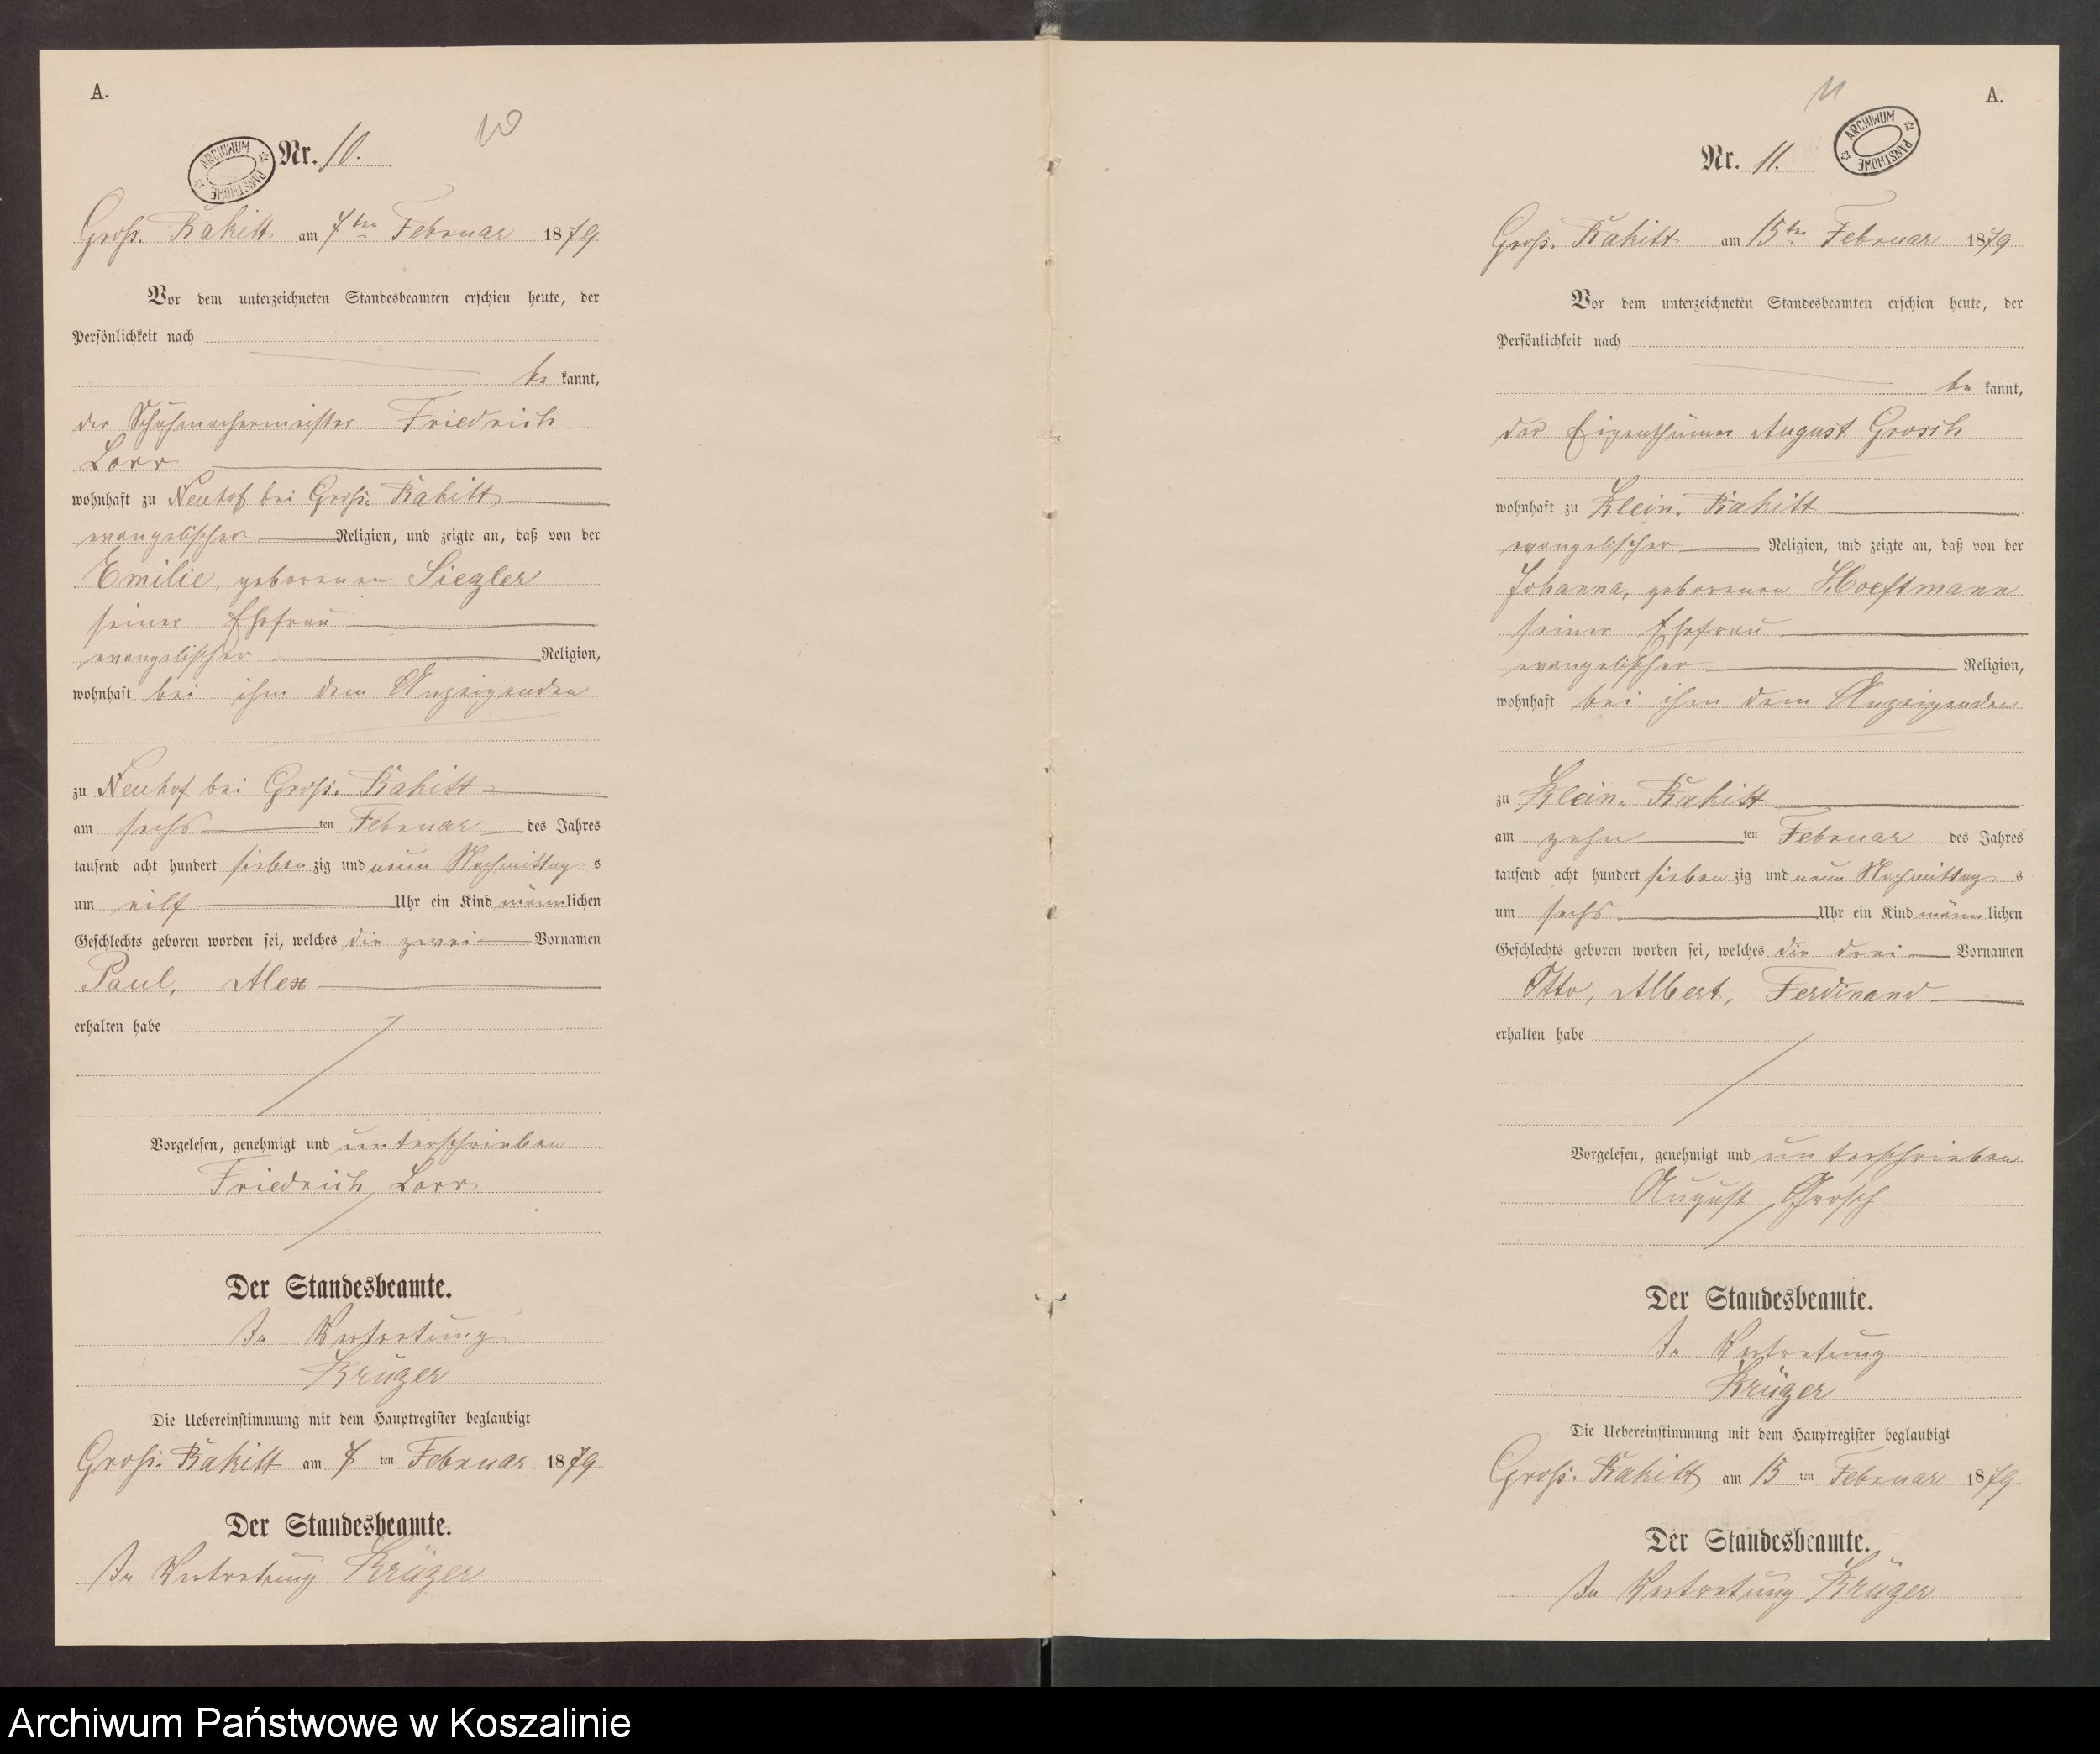 A.
10
ARCHIWUM PAŃSTWOWE
Nr. 10.
Groß. Rakitt am 7ten Februar 1879
Vor dem unterzeichneten Standesbeamten erschien heute, der
Persönlichkeit nach
be kannt,
der Schuhmachermeister Friedrich
Lorr
wohnhaft zu Neuhof bei Groß. Rakitt
evangelischer Religion, und zeigte an, daß von der
Emilie, geborenen Siegler
seiner Ehefrau
evangelischer Religion,
wohnhaft bei ihm dem Anzeigenden
zu Neuhof bei Groß. Rakitt
am sechs ten Februar des Jahres
tausend acht hundert siebenzig und neun Nachmittags
um eilf Uhr ein Kind männlichen
Geschlechts geboren worden sei, welches die zwei Vornamen
Paul, Alex
erhalten habe
Vorgelesen, genehmigt und unterschrieben
Friedrich Lorr
Der Standesbeamte.
In Vertretung
Krüger
Die Uebereinstimmung mit dem Hauptregister beglaubigt
Groß. Rakitt am 7 ten Februar 1879
Der Standesbeamte.
In Vertretung Krüger
11
A.
ARCHIWUM PAŃSTWOWE
Nr. 11.
Groß. Rakitt am 15ten Februar 1879
Vor dem unterzeichneten Standesbeamten erschien heute, der
Persönlichkeit nach
be kannt,
der Eigenthümer August Grosch
wohnhaft zu Klein. Rakitt
evangelischer Religion, und zeigte an, daß von der
Johanna, geborenen Hoeftmann
seiner Ehefrau
evangelischer Religion,
wohnhaft bei ihm dem Anzeigenden
zu Klein. Rakitt
am zehn ten Februar des Jahres
tausend acht hundert siebenzig und neun Nachmittags
um sechs Uhr ein Kind männlichen
Geschlechts geboren worden sei, welches die drei Vornamen
Otto, Albert, Ferdinand
erhalten habe
Vorgelesen, genehmigt und unterschrieben
August Grosch
Der Standesbeamte.
In Vertretung
Krüger
Die Uebereinstimmung mit dem Hauptregister beglaubigt
Groß. Rakitt am 15 ten Februar 1879
Der Standesbeamte.
In Vertretung Krüger
Archiwum Państwowe w Koszalinie